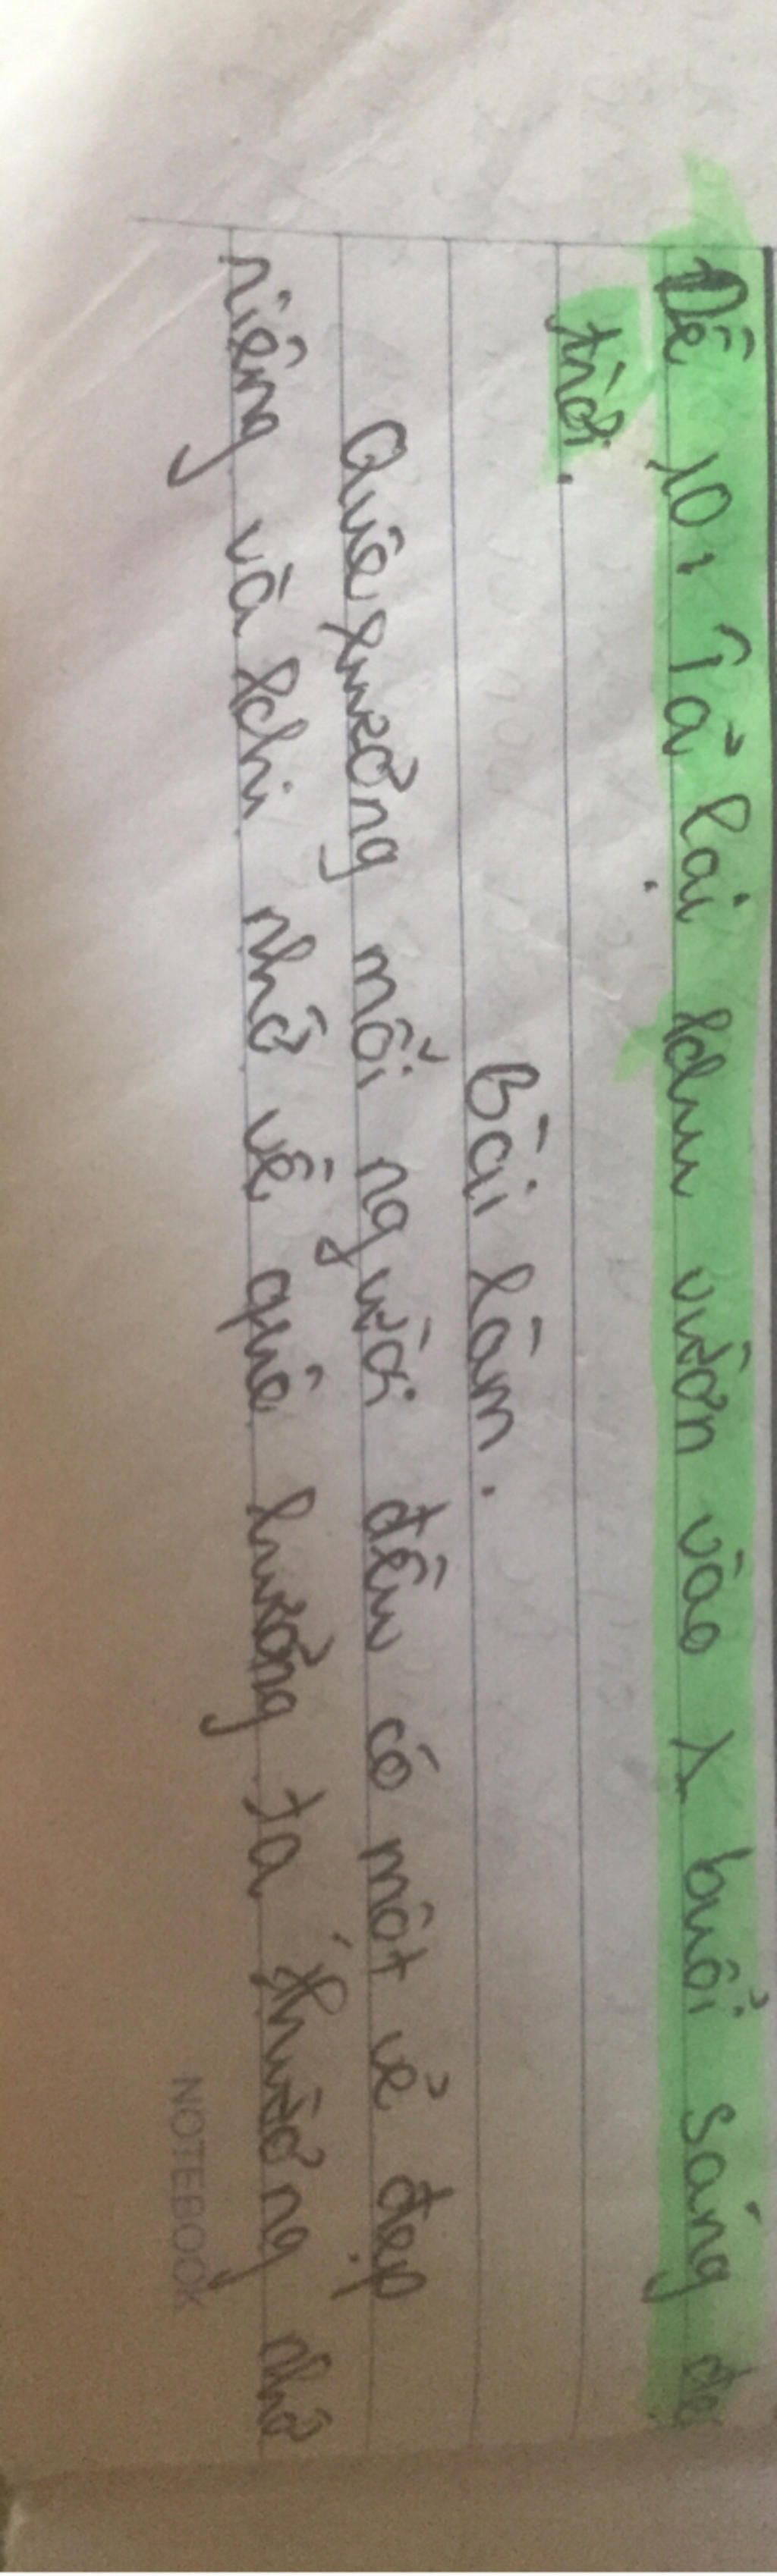 Đề 10, Tả lại khu vườn vào 1 buổi sáng đẹ
trời.
Bài làm.
Quê hương mỗi người đều có một vẻ đẹp
riêng và khi nhớ về quê hương ta thường nhớ
NOTEBOOK